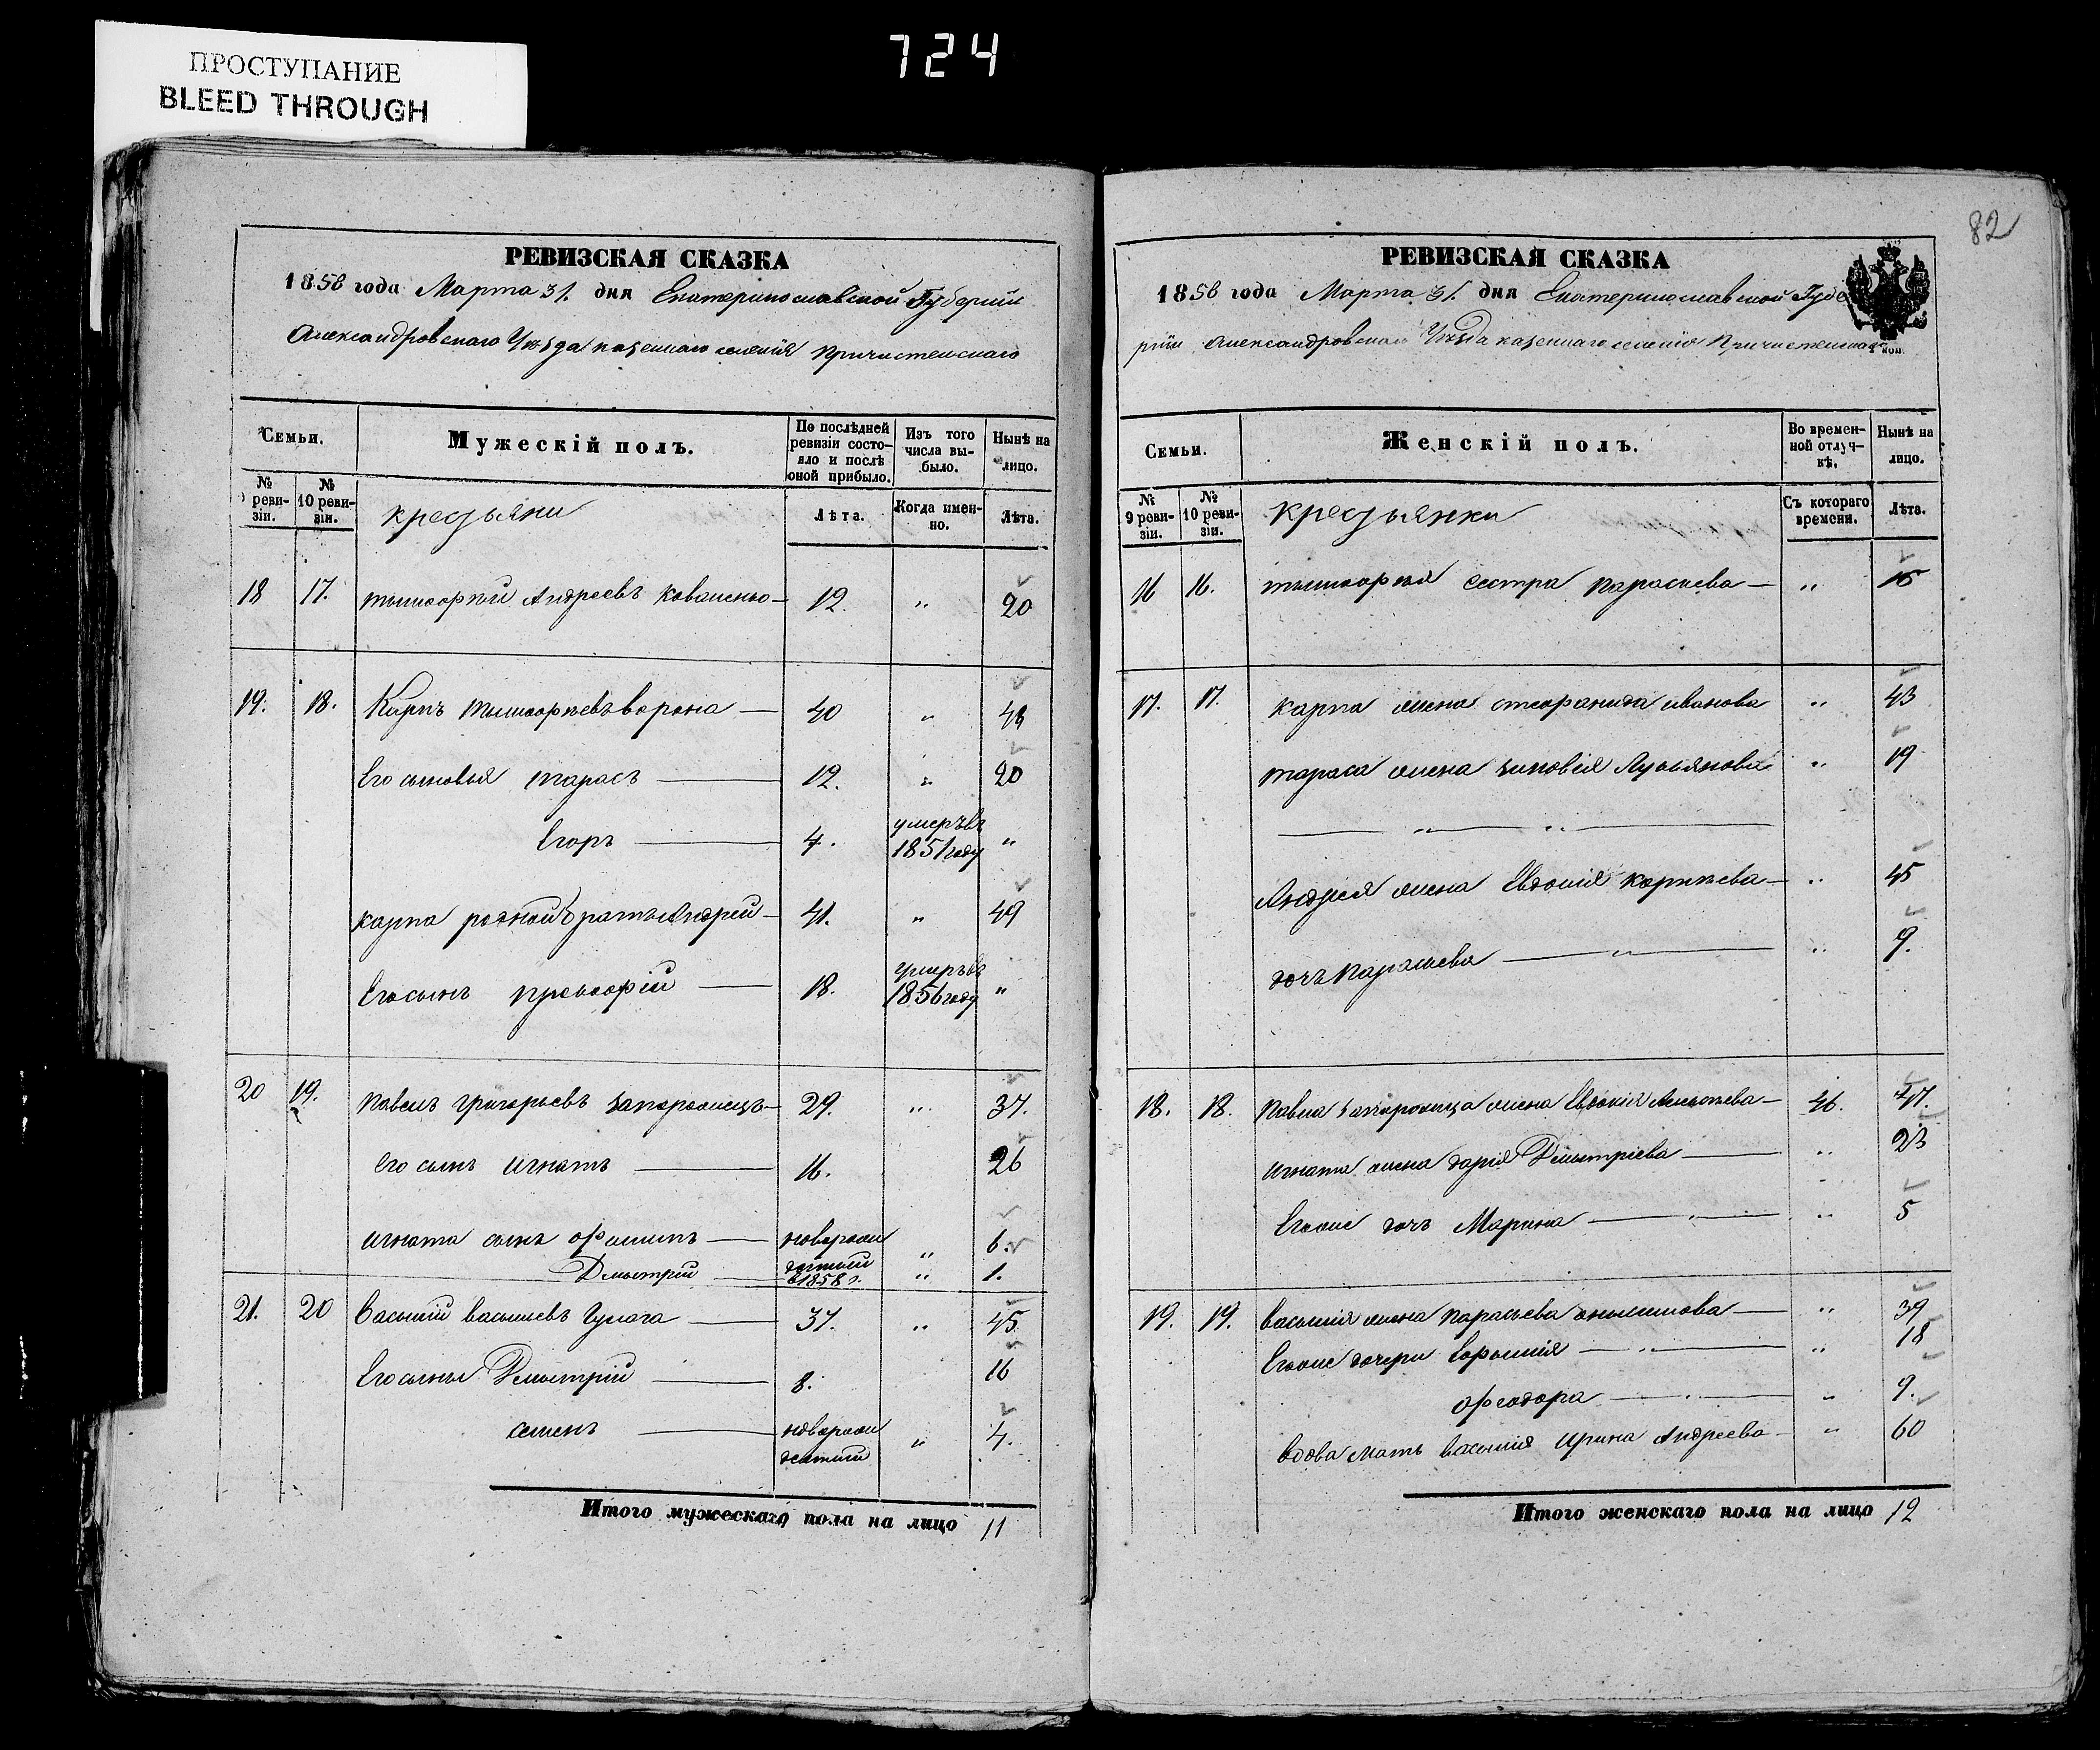 724
ПРОСТУПАНИЕ
BLEED THROUGH
РЕВИЗСКАЯ СКАЗКА
1858 года Марта 31. дня Екатеринославской Губернии
Александровскаго Уѣзда казеннаго селенія Причистенскаго
Семьи.
Мужескій полъ.
По послѣдней ревизіи состояло и послѣ оной прибыло.
Изъ того числа выбыло.
Нынѣ на лицо.
№ 9 ревизіи.
№ 10 ревизіи.
крестьяни
Лѣта.
Когда именно.
Лѣта.
18 17. Тимофѣй Андреевъ Коваленко — 12. „ 20
19. 18. Карпъ Тимофѣевъ Ворона — 40 „ 48
Его сыновья Тарасъ — 12. „ 20
Егоръ — 4. умеръ въ 1851 году „
Карпа родной братъ Андрей — 41. „ 49
Его сынъ Прокофій — 18. умеръ въ 1856 году „
20 19. Павелъ Григорьевъ Запорожецъ — 29. „ 37.
его сынъ Игнатъ — 16. 26
Игната сынъ Филипъ — новорож „ 6.
Дмытрій — денный 1858 г. „ 1.
21. 20 Василій Васильевъ Гулага — 37. „ 45
Его сынъ Дмытрій — 8. 16
Семенъ — новорожденный „ 4.
Итого мужескаго пола на лицо 11
82
РЕВИЗСКАЯ СКАЗКА
1858 года Марта 31. дня Екатеринославской Губе
рніи Александровскаго Уѣзда казеннаго селенія Причистенскаго
Семьи.
Женскій полъ.
Во временной отлучкѣ.
Нынѣ на лицо.
№ 9 ревизіи.
№ 10 ревизіи.
крестьянки
Съ котораго времени.
Лѣта.
16 16. Тимофѣя сестра Параскева — „ 16
17. 17. Карпа жена Стефанида Иванова „ 43
Тараса жена Зиновія Лукьянова „ 19
— „ — „ —
Андрея жена Евдокія Корнѣева — „ 45
дочь Параскева — „ — „ 9.
18. 18. Павла Запорожца жена Евдокія — 46. 47.
Игната жена Дарія Дмытріева — „ 23
Егоже дочь Марина — „ — „ 5
19. 19. Василія жена Параскева — „ 39
Егоже дочери Евфимія — „ — „ 18
Феодора — „ — „ 9.
Вдова мать Василія Ирина Андреева „ 60
Итого женскаго пола на лицо 12